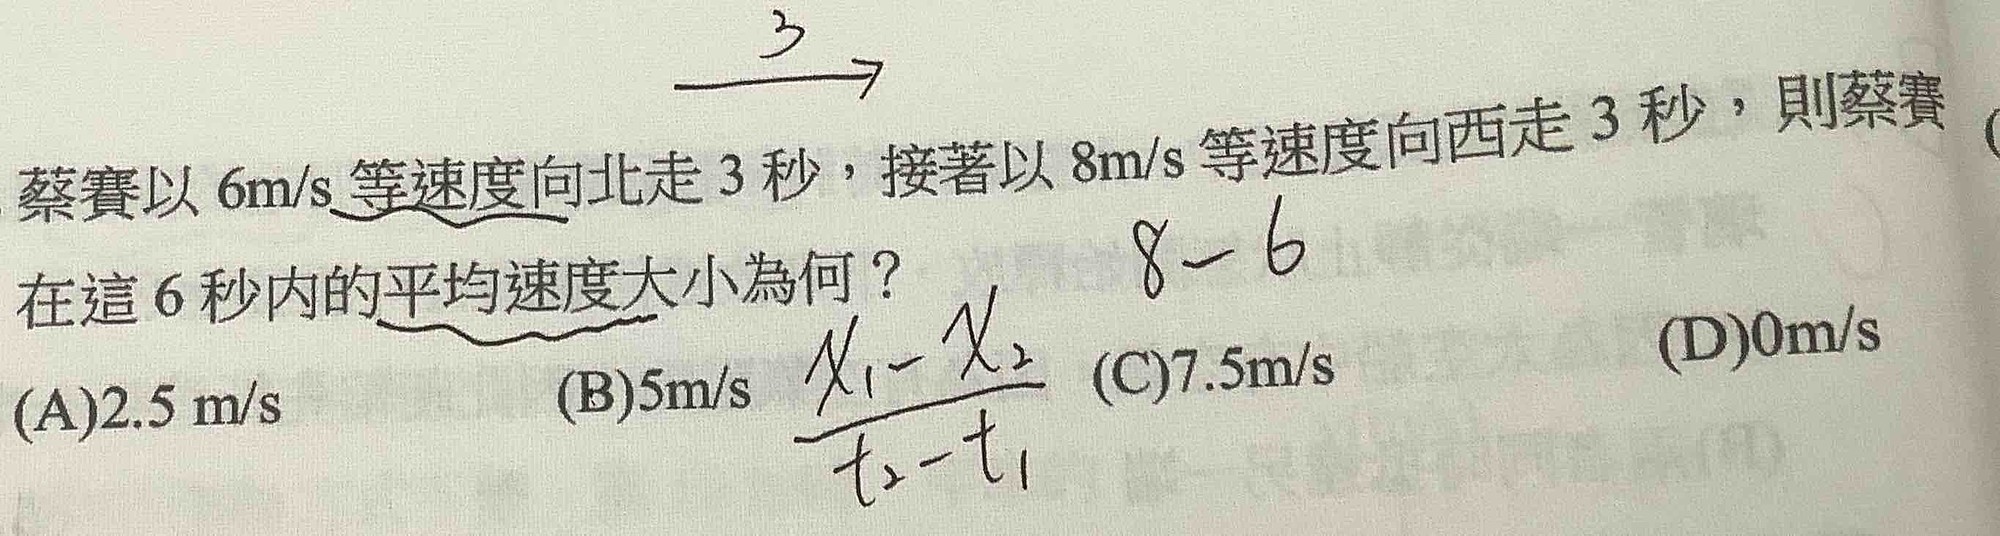 3
蔡賽以 6m/s 等速度向北走 3 秒，接著以 8m/s 等速度向西走 3 秒，則蔡賽
8-6
在這 6 秒內的平均速度大小為何？
(A)2.5 m/s (B)5m/s (C)7.5m/s (D)0m/s
x₁-x₂
t₂-t₁